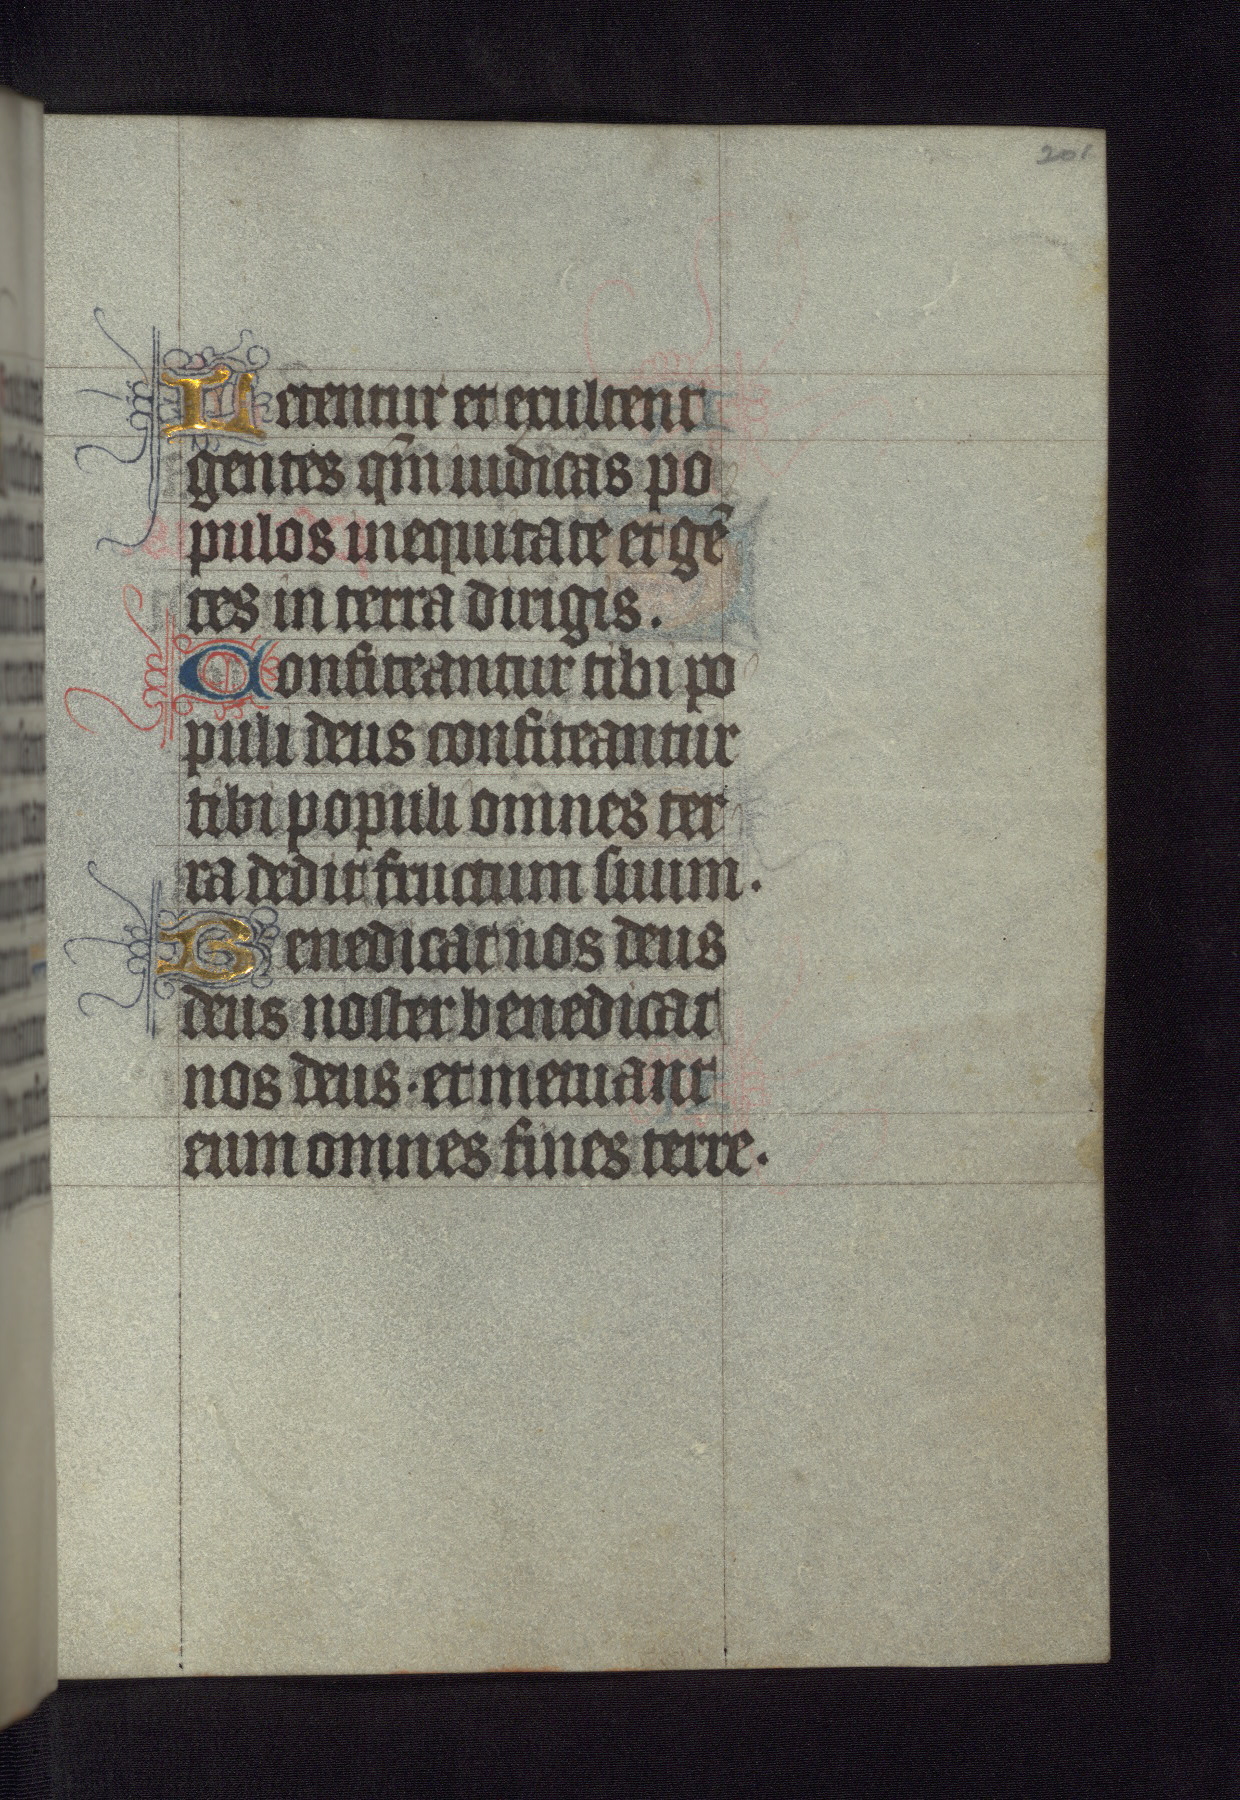 201
Letentur et exultent
gentes qm̄ iudicas po
pulos in equitate et gē
tes in terra dirigis.
Confiteantur tibi po
puli deus confiteantur
tibi populi omnes ter
ra dedit fructum suum.
Benedicat nos deus
deus noster benedicat
nos deus. et metuant
eum omnes fines terre.